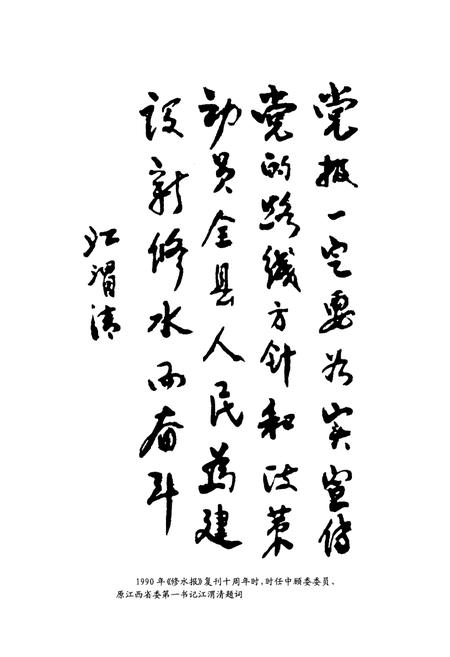 党报一定要实宣传
党的路线方针和政策
动员全县人民為建
设新修水而奋斗
江渭清
1990年《修水报》复刊十周年时,时任中顾委委员、
原江西省委第一书记江渭清题词